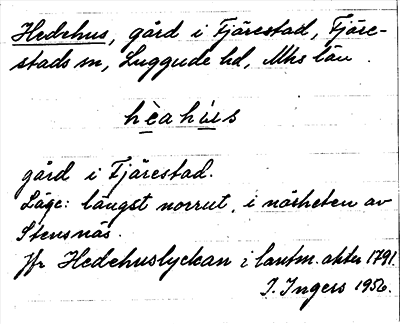 Hedehus, gård i Fjärestad, Fjäre-
stads sn, Luggude hd, Mhs län.
hèahús
gård i Fjärestad.
Läge: längst norrut, i närheten av
Stensnäs.
Jfr Hedehuslyckan i lantm. akter 1791.
I. Ingers 1956.